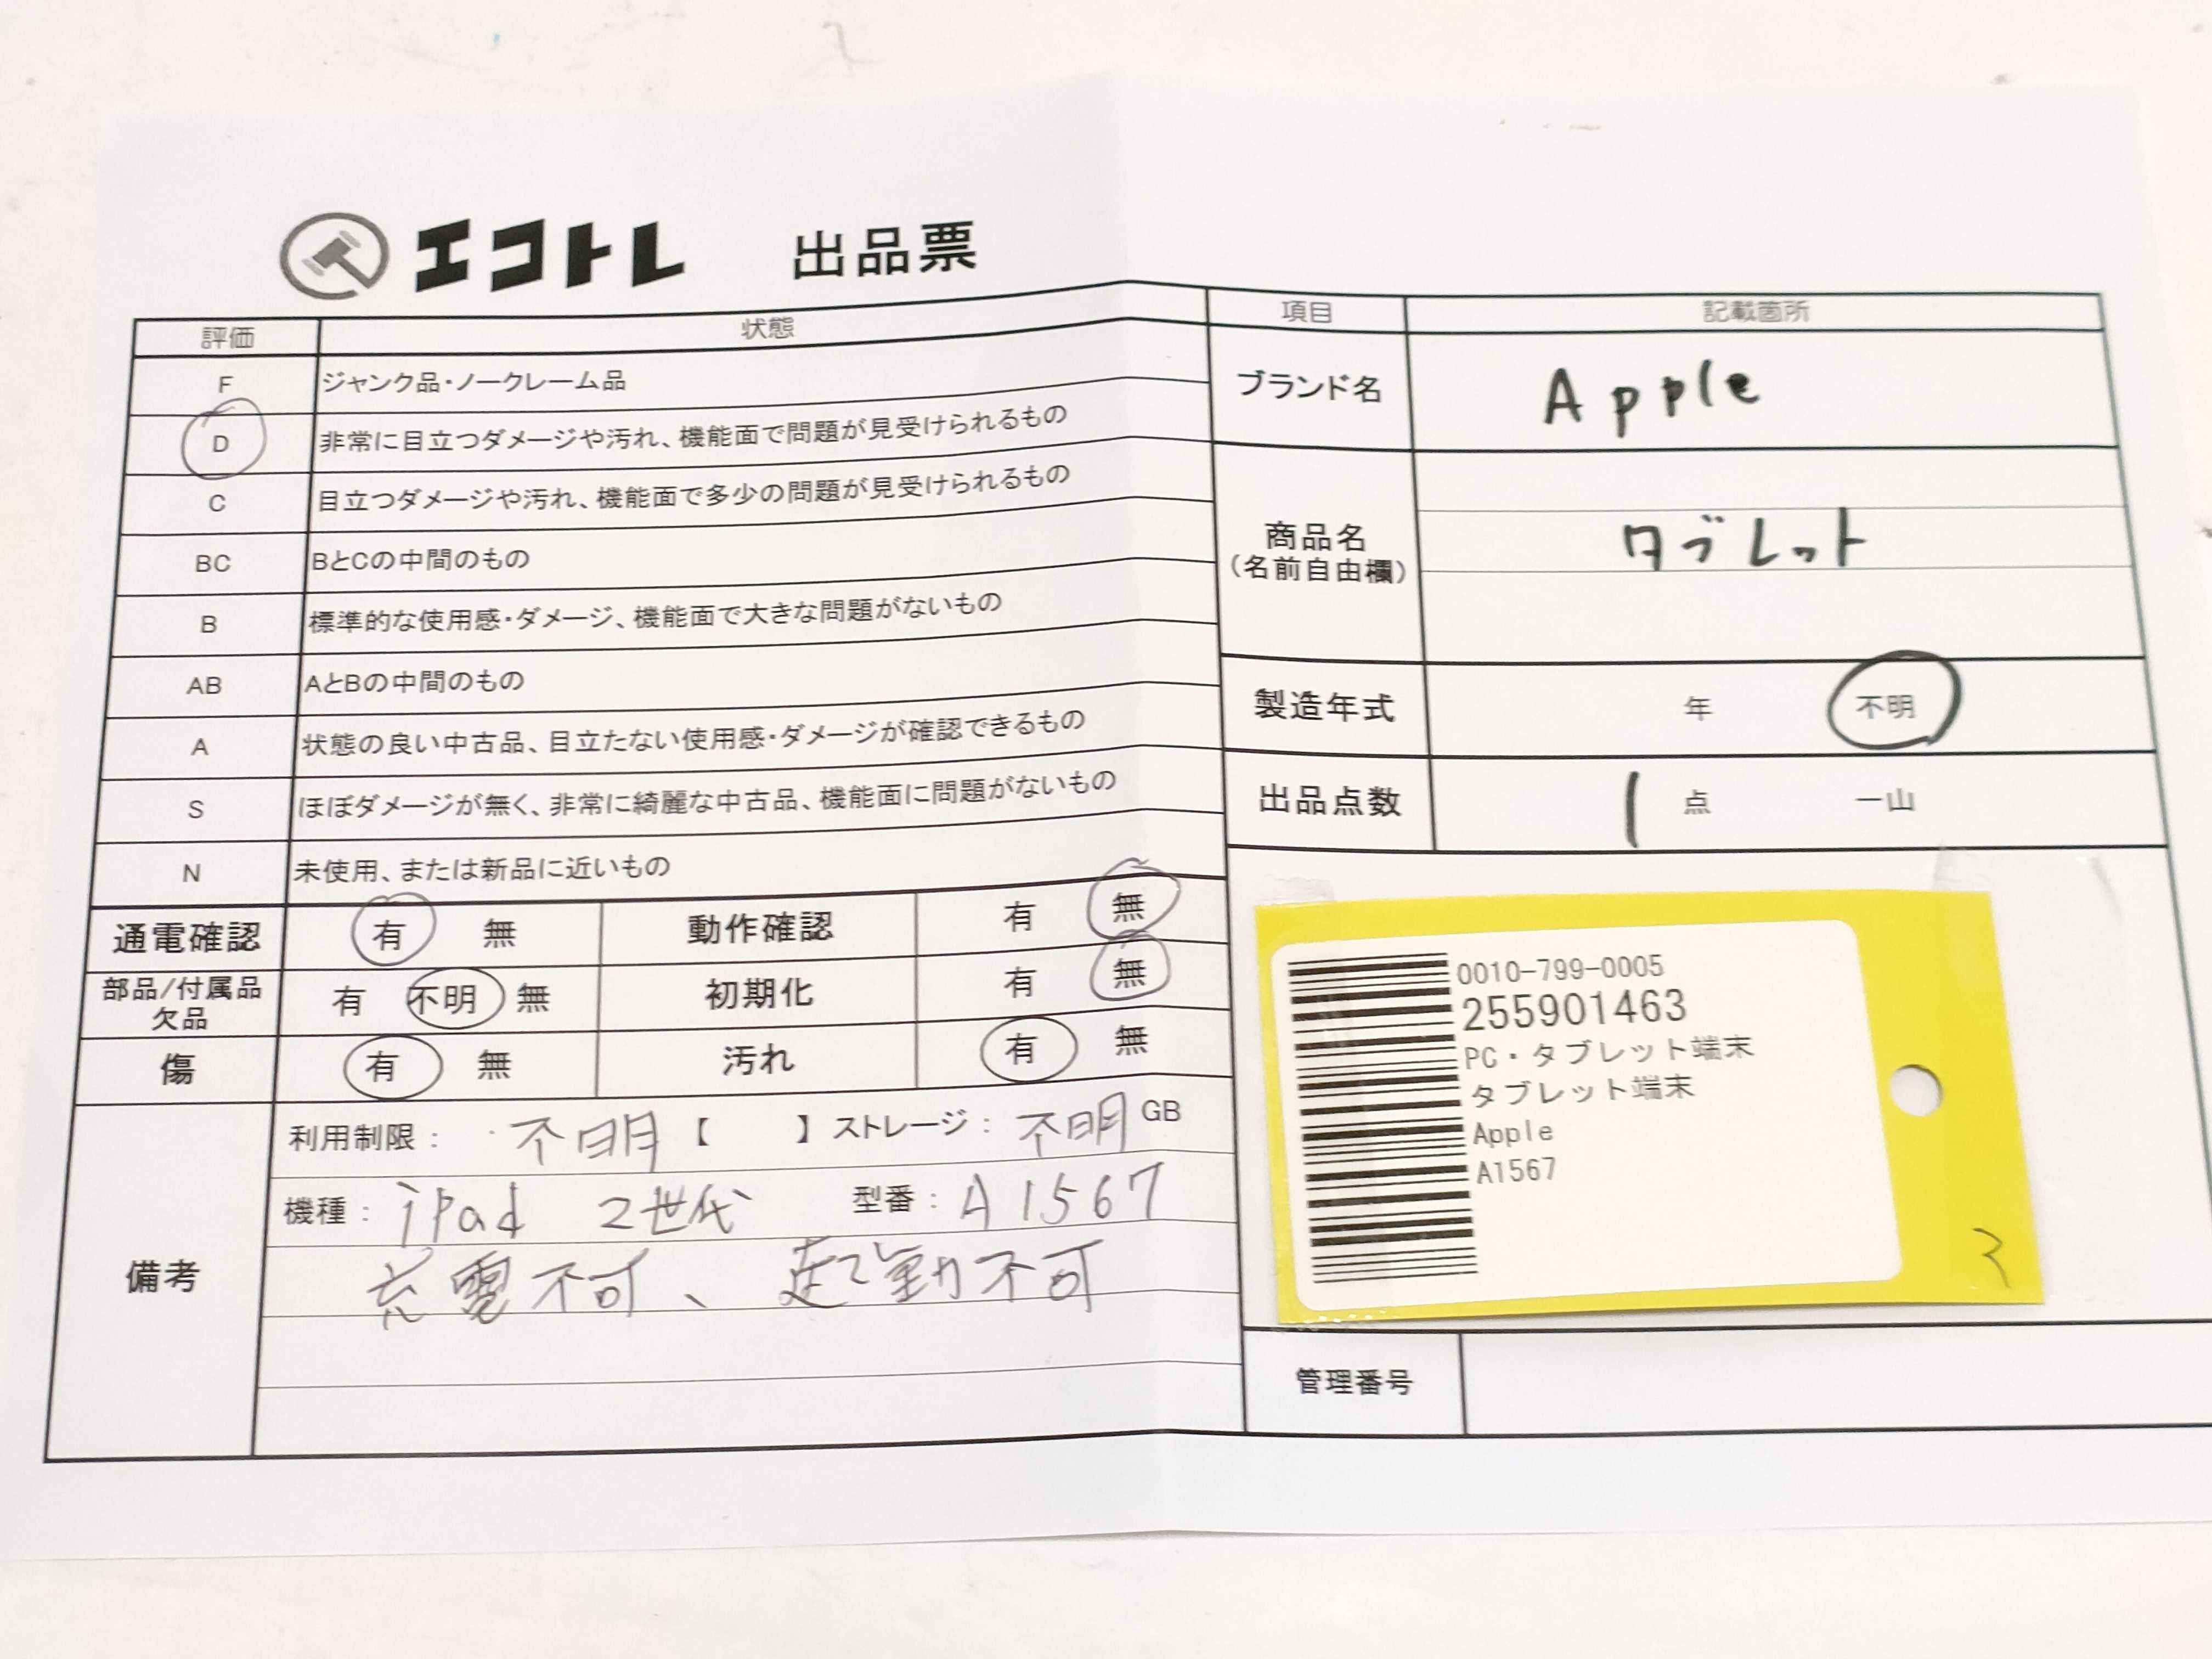 エコトレ 出品票
評価 状態
F ジャンク品・ノークレーム品
D 非常に目立つダメージや汚れ、機能面で問題が見受けられるもの
C 目立つダメージや汚れ、機能面で多少の問題が見受けられるもの
BC BとCの中間のもの
B 標準的な使用感・ダメージ、機能面で大きな問題がないもの
AB AとBの中間のもの
A 状態の良い中古品、目立たない使用感・ダメージが確認できるもの
S ほぼダメージが無く、非常に綺麗な中古品、機能面に問題がないもの
N 未使用、または新品に近いもの
通電確認 有 無 動作確認 有 無
部品/付属品 欠品 有 不明 無 初期化 有 無
傷 有 無 汚れ 有 無
備考
利用制限： 不明【 】ストレージ：不明GB
機種：iPad 2世代 型番：A1567
充電不可、起動不可
項目 記載箇所
ブランド名 Apple
商品名 タブレット
(名前自由欄)
製造年式 年 不明
出品点数 1 点 一山
0010-799-0005
255901463
PC・タブレット端末
タブレット端末
Apple
A1567
3
管理番号